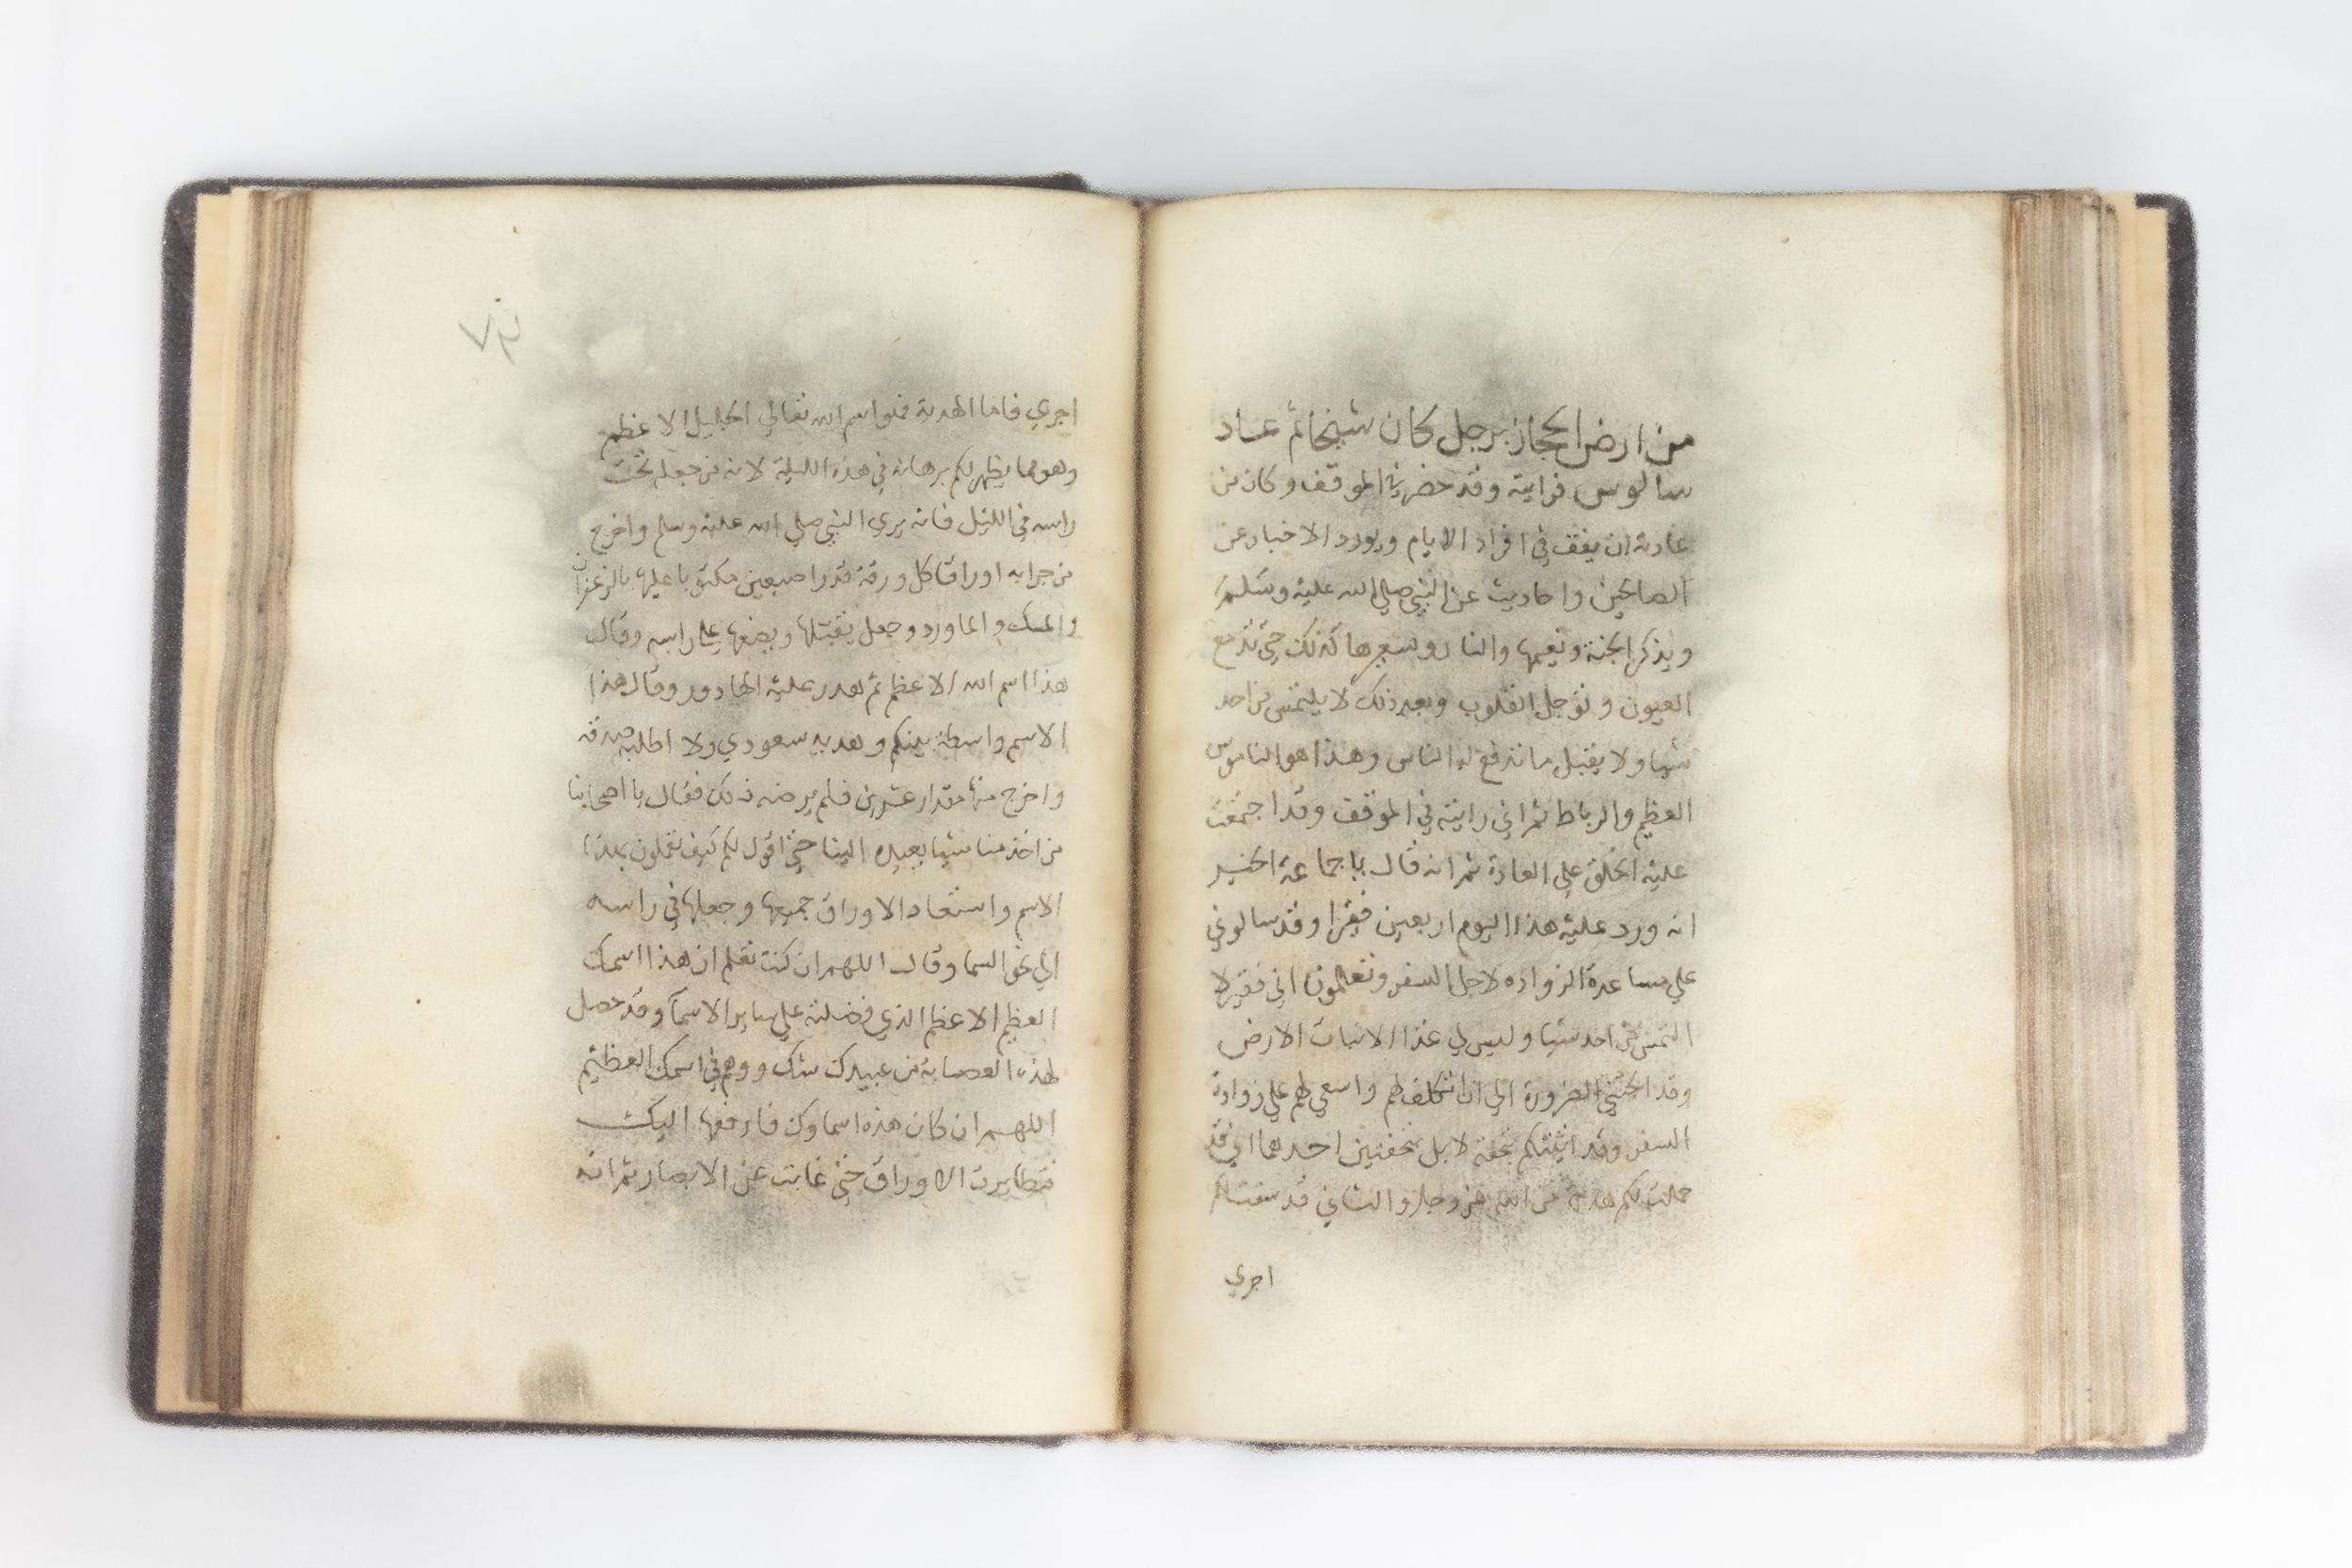 من ارض الحجاز برجل كان شيخا ثم عاد
سالوس فرايته وقد حضر في الموقف وكان من
عادته ان يقف في افراد الايام ويورد الاخبار عن
الصالحين واحاديث عن النبي صلي الله عليه وسلم
ويذكر الجنة ونعيمها والنار وسعيرها كذلك حتي تدمع
العيون وتوجل القلوب وبعد ذلك لا يلتمس من احد
شيا ولا يقبل ما تدفع له الناس وهذا هو الناموس
العظيم والرباط ثم اني رايته في الموقف وقد اجتمعت
عليه الخلق علي العادة ثم انه قال يا جماعة الخير
انه ورد عليه هذا اليوم اربعين فقيرا وقد سالوني
علي مساعدة الزواده لاجل السفر وتعلمون اني فقير لا
التمس من احد شيا وليس لي غذا الا نبات الارض
وقد الجتني الضرورة الي ان اتكلف لهم واسعي لهم علي زوادة
السفر وقد اتيتكم بتحفة لا بل بتحفتين احدهما اني قد
حملت لكم هدية من الله عز وجل والثاني قد سقت لكم
اجري
٧٣
اجري فاما الهدية فهو اسم الله تعالي الجليل الاعظم
وهو مما يظهر لكم برهانه في هذه الليلة لانه من جعله تحت
راسه في الليل فانه يري النبي صلي الله عليه وسلم واخرج
من جرابه اوراقا كل ورقة قدر اصبعين مكتوبا عليها بالزعفران
والمسك والماورد وجعل يقبلها ويضعها علي راسه وقال
هذا اسم الله الاعظم ثم هدر عليه الهادور وقال هذا
الاسم واسطة بينكم وهديه سعودي ولا اطلبه صدقه
واخرج منها مقدار عشرين فلم يرضه ذلك فقال يا اصحابنا
من اخذ منا شيا يعيده الينا حتي اقول لكم كيف تعملون بهذا
الاسم واستعاد الاوراق جميعها وجعلها في راسه
الي نحو السما وقال اللهم ان كنت تعلم ان هذا اسمك
العظيم الاعظم الذي فضلته علي ساير الاسما وقد حصل
لهذه العصابة من عبيدك شك ووهم في اسمك العظيم
اللهم ان كان هذه اسماوك فارفعها اليك
فتطايرت الاوراق حتي غابت عن الابصار ثم انه